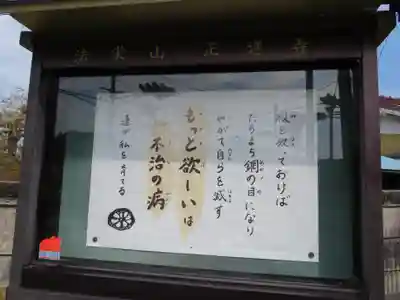 法実山 正蓮寺
放って
おけば
たちまち網の目になり
やがて自らを滅す
もっと欲しいは
不治の病
道が 私を育てる